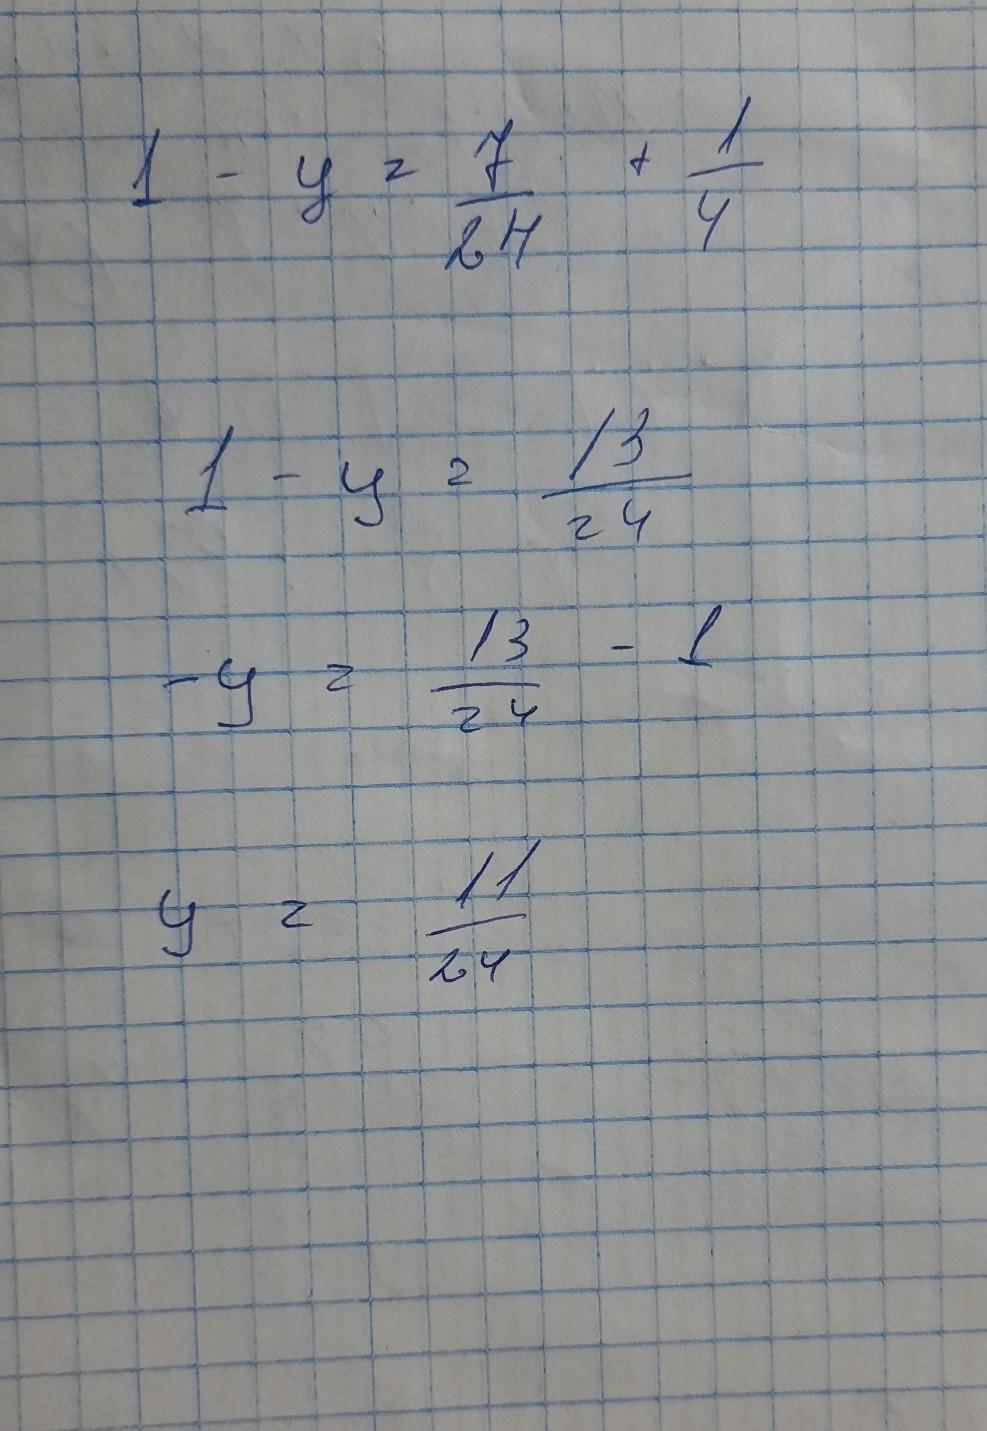 1 - y = 7/24 + 1/4
1 - y = 13/24
-y = 13/24 - 1
y = 11/24